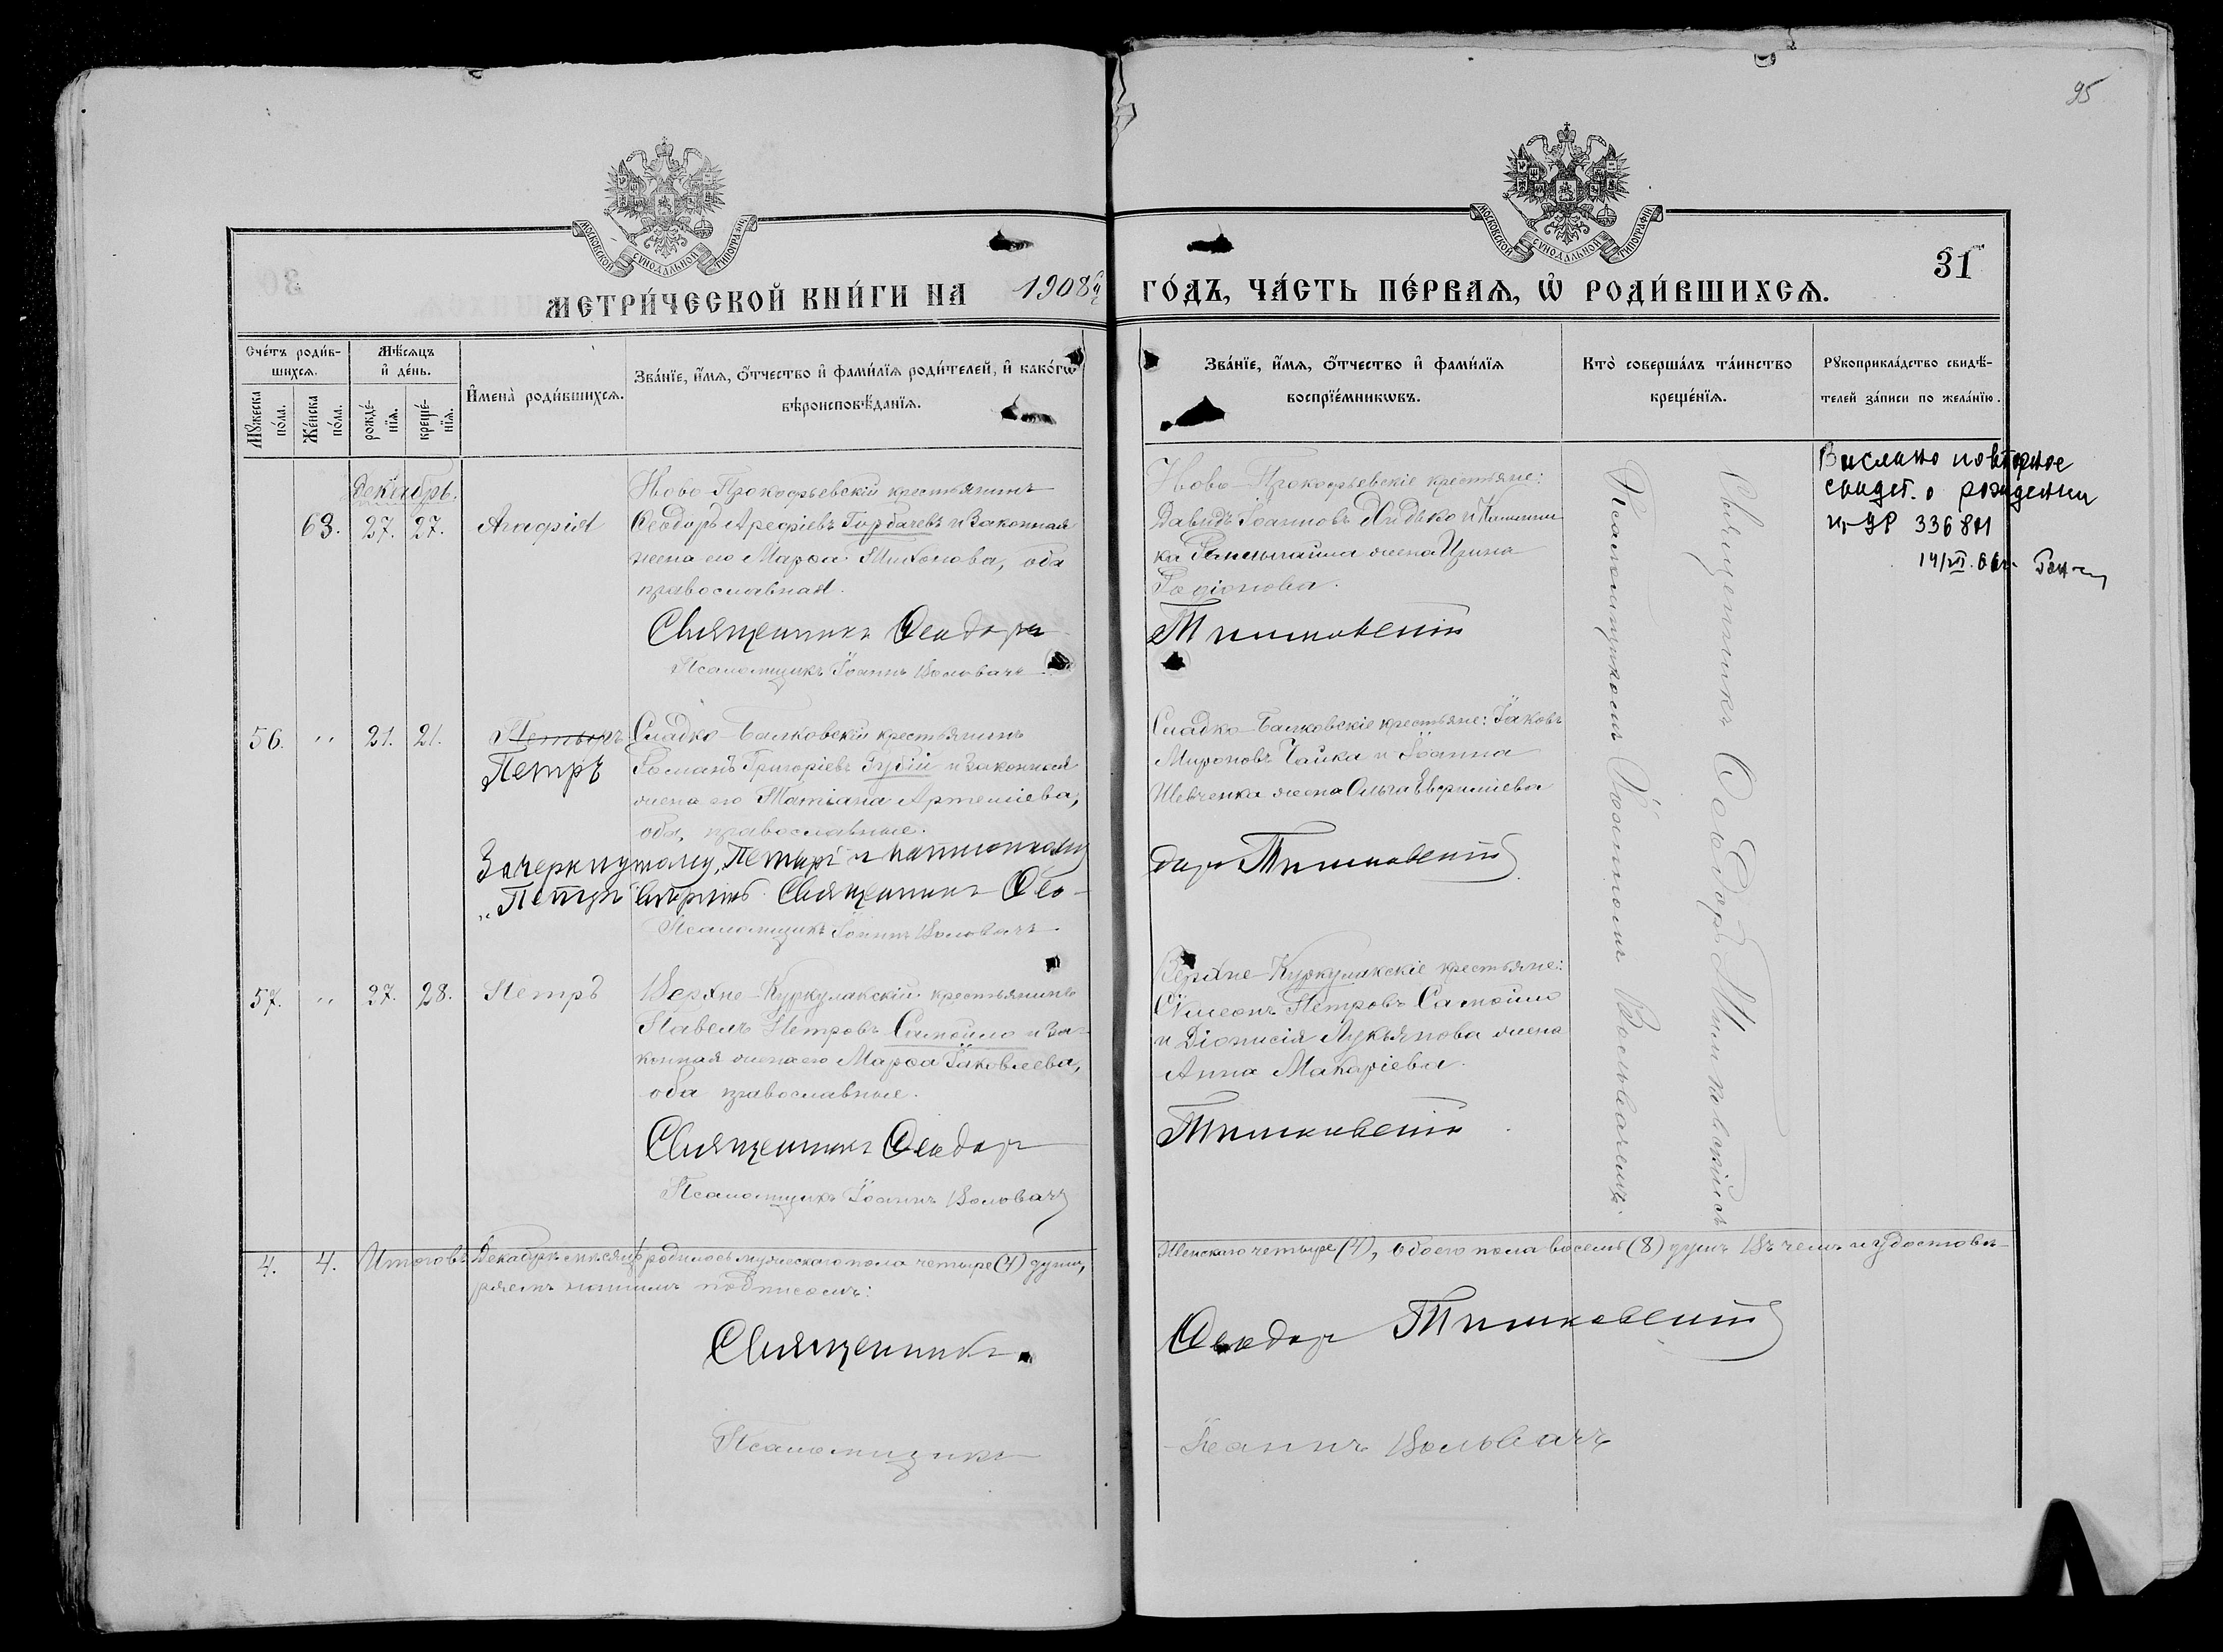 95
МОСКОВСКОЙ СУНОДАЛЬНОЙ ТИПОГРАФІИ
МОСКОВСКОЙ СУНОДАЛЬНОЙ ТИПОГРАФІИ
31
МЕТРИ́ЧЕСКОЙ КНИ́ГИ НА 1908й ГО́ДЪ, ЧА́СТЬ ПЕ́РВАѦ, Ѡ҆ РОДИ́ВШИХСѦ.
Сче́тъ роди́в-
шихсѧ.
Мꙋ́жеска по́ла.
Же́нска по́ла.
Мѣ́сѧцъ
и҆ де́нь.
рожде́-
нїѧ.
креще́-
нїѧ.
И҆мена̀ роди́вшихсѧ.
Зва́нїе, и҆́мѧ, ѻ҆́тчество и҆ фами́лїѧ роди́телей, и҆ како́гѡ
вѣроисповѣ́данїѧ.
Зва́нїе, и҆́мѧ, ѻ҆́тчество и҆ фами́лїѧ
воспрїе́мникѡвъ.
Кто̀ соверша́лъ та́инство
креще́нїѧ.
Рꙋкоприкла́дство свидѣ́-
телей за́писи по жела́нїю.
Декабрь.
63. 27. 27. Агафія
Ново-Прокофьевскій крестьянинъ
Ѳеодоръ Арефіевъ Горбачевъ и законная
жена его Марѳа Тихонова, оба
православная.
Священникъ Ѳеодоръ
Псаломщикъ Іоаннъ Воловачъ
Ново-Прокофьевскіе крестьяне:
Давидъ Іоанновъ Дидько и
жена Ирина
Родіонова.
Тишковскій
Священникъ Ѳеодоръ Тишковскій съ
Псаломщикомъ Іоанномъ Воловачемъ.
Выслано повторное
свидет. о рождении
336811
56. " 21. 21. Петыръ
Петръ
Сладко-Балковскій крестьянинъ
Романъ Григоріевъ Зубій и законная
жена его Татіана Артеміева,
оба православные.
Зачеркнутому „Петыръ" и написанному
„Петръ" вѣрить. Священникъ Ѳео-
Псаломщикъ Іоаннъ Воловачъ.
Сладко-Балковскіе крестьяне: Іаковъ
Мироновъ Чайка и Іоанна
Шевченка жена Ольга Евфиміева
доръ Тишковскій
57. " 27. 28. Петръ
Верхне-Куркулакскій крестьянинъ
Павелъ Петровъ Самойло и за-
конная жена его Марѳа Іаковлева,
оба православные.
Священникъ Ѳеодоръ
Псаломщикъ Іоаннъ Воловачъ
Верхне-Куркулакскіе крестьяне:
Сѵмеонъ Петровъ Самойло
и Діонисія Лукьянова жена
Анна Макаріева.
Тишковскій
4. 4. Итого въ Декабрѣ мѣсяцѣ родилось мужескаго пола четыре (4) души,
женскаго четыре (4), обоего пола восемь (8) душъ. Въ чемъ и удостовѣ-
ряемъ нашимъ подписомъ:
Священникъ Ѳеодоръ Тишковскій
Псаломщикъ Іоаннъ Воловачъ